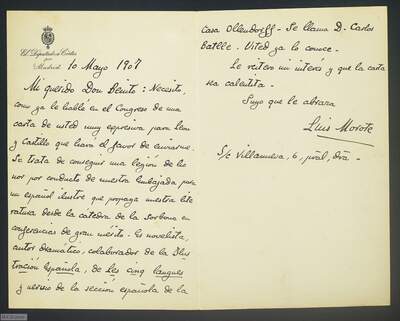 El Diputado a Cortes
por
Madrid
10 Mayo 1907
Mi querido Don Benito: Necesito,
como ya le hablé en el Congreso de una
carta de usted muy expresiva para León
y Castillo que hará el favor de enviarme.
Se trata de conseguir una legión de ho
nor por conducto de nuestra Embajada, para
un español ilustre que propaga nuestra lite
ratura desde la cátedra de la Sorbona en
conferencias de gran mérito. Es novelista,
autor dramático, colaborador de la Ilus
tración Española, de Les cinq langues
y de la sección española de la
casa Ollendorff - Se llama D. Carlos
Batlle. Usted ya lo conoce.
Le reitero mi interés y que la carta
sea calentita.
Suyo que le abraza
Luis Morote
S/c Villanueva, 6, pral, dra.